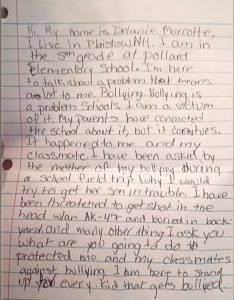 Hi, My name is Delanie Marcotte,
I live in Plaistow NH. I am in
the 5th grade at pollard
Elementary School. I'm here
to talk about a problem that means
a lot to me. Bullying. Bullying is
a problem Schools. I am a victum
of it. My parents have conacted
the school about it, but it continues.
It happened to me and my
classmate. I have been asked by
the mother of my bullying during
a School field trip Why I would
try to get her son in trouble. I have
been threatened to get shot in the
head w/an AK-47 and boried in back-
yard and many other thing I ask you
what are you going to do to
protected me and my classmates
against bullying. I am here to stand
up for every kid that gets bullyed.